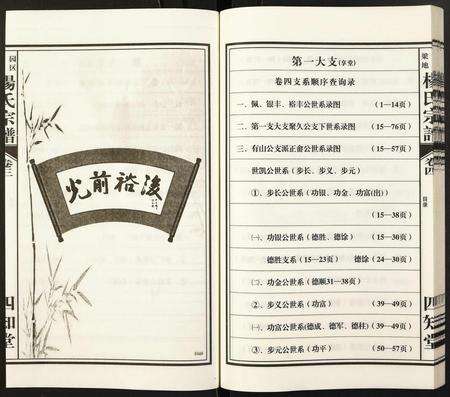 园区
楊氏宗譜
卷三
四知堂
光前裕後
梁地
楊氏宗譜
卷四
目录
四知堂
第一大支(享堂)
卷四支系顺序查询录
一、佩、银丰、裕丰公世系录图 (1—14页)
二、第一支大支聚久公支下世系录图 (15—76页)
三、有山公支派正畲公世系录图 (15—57页)
世凯公世系（步长、步义、步元）
①、步长公世系（功银、功金、功富(出)）
(15—38页)
㈠、功银公世系（德胜、德馀） (15—30页)
德胜支系（15—23页） 德馀（24—30页）
㈡、功金公世系（德顺31—38页）
②、步义公世系（功富） (39—49页)
㈠、功富公世系(德成、德军、德柱) (39—49页)
③、步元公世系（功平） (50—57页)